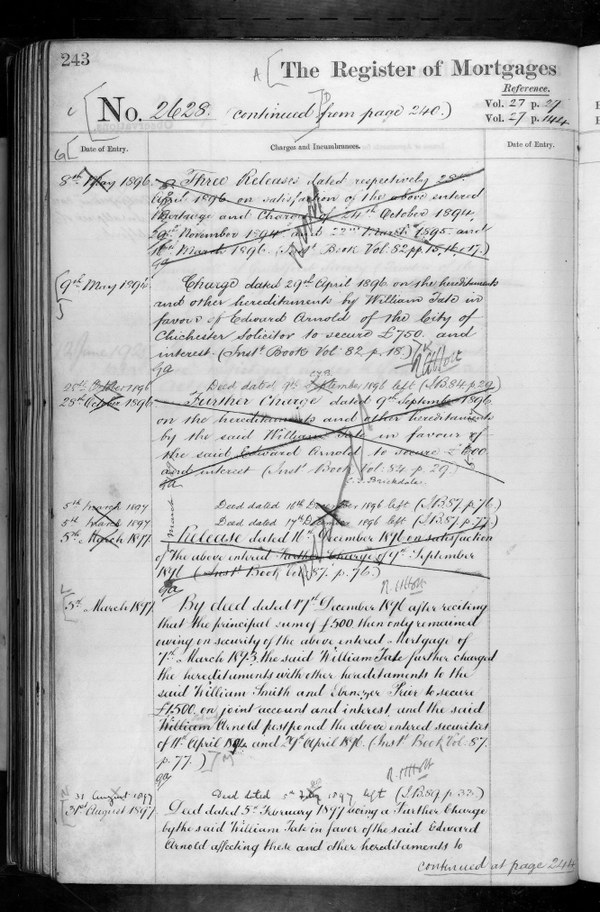 243
The Register of Mortgages
Reference.
No. 2628. (continued from page 240.)
Vol. 27 p. 27
Vol. 27 p. 144
Date of Entry.
Charges and Incumbrances.
Date of Entry.
8th May 1896. Three Releases dated respectively 28th
April 1896 on satisfaction of the above entered
Mortgage and Charges of 24th October 1894,
29th November 1894 and 22nd March 1895 and
March 1896. (Inst. Book Vol. 82 pp. 15, 16, & 17.)
9th May 1896. Charge dated 29th April 1896 on the hereditaments
and other hereditaments by William Tate in
favour of Edward Arnold of the City of
Chichester Solicitor to secure £750. and
interest. (Inst. Book Vol. 82 p. 18.)
Deed dated 9th September 1896 left (I.B. 84 p. 29)
28th October 1896. Further Charge dated 9th September 1896
on the hereditaments and other hereditaments
by the said William Tate in favour of
the said Edward Arnold to secure
and interest (Inst. Book Vol. 84 p. 29.)
Brickdale.
5th March 1897 Deed dated 16th December 1896 left (I.B. 87. p. 76.)
5th March 1897 Deed dated 17th December 1896 left (I.B. 87. p. 77.)
5th March 1897. Release dated 16th December 1896 on satisfaction
of the above entered Further Charge of 9th September
1896 (Inst. Book Vol. 87. p. 76.)
5th March 1897 By deed dated 17th December 1896 after reciting
that the principal sum of £500 then only remained
owing on security of the above entered Mortgage of
7th March 1893, the said William Tate further charged
the hereditaments with other hereditaments to the
said William Smith and Ebenezer Prior to secure
£1500 on joint account and interest, and the said
William Arnold postponed the above entered securities
of 11th April 1894 and 29th April 1896. (Inst. Book Vol. 87.
p. 77.)
31 August 1897 Deed dated 5th 1897 left (I.B. 89 p. 33.)
31st August 1897 Deed dated 5th February 1897 being a Further Charge
by the said William Tate in favor of the said Edward
Arnold affecting these and other hereditaments to
continued at page 244